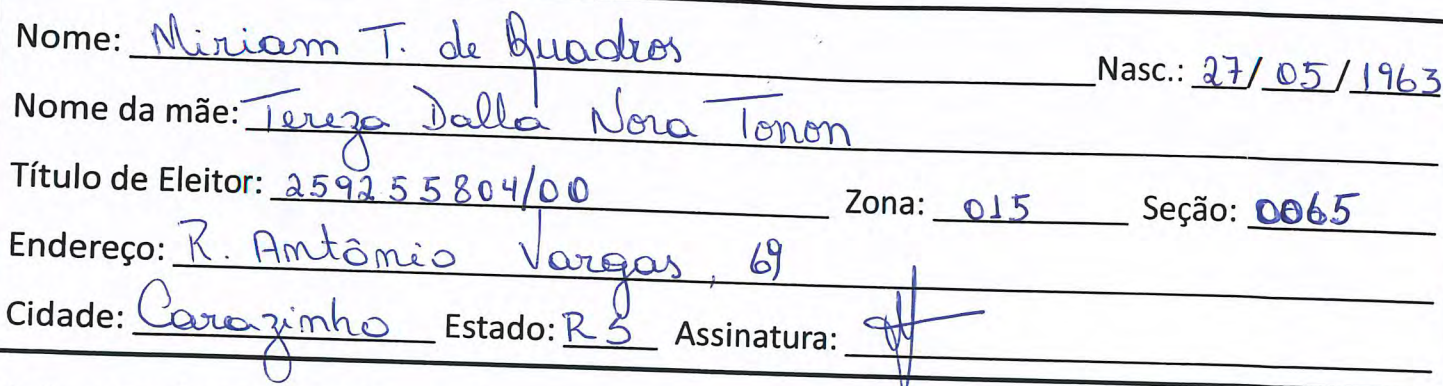 Nome: Miriam T. de Quadros Nasc.: 27/05/1963
Nome da mãe: Tereza Dalla Nora Tonon
Título de Eleitor: 259255804/00 Zona: 015 Seção: 0065
Endereço: R. Antônio Vargas, 69
Cidade: Carazinho Estado: RS Assinatura: